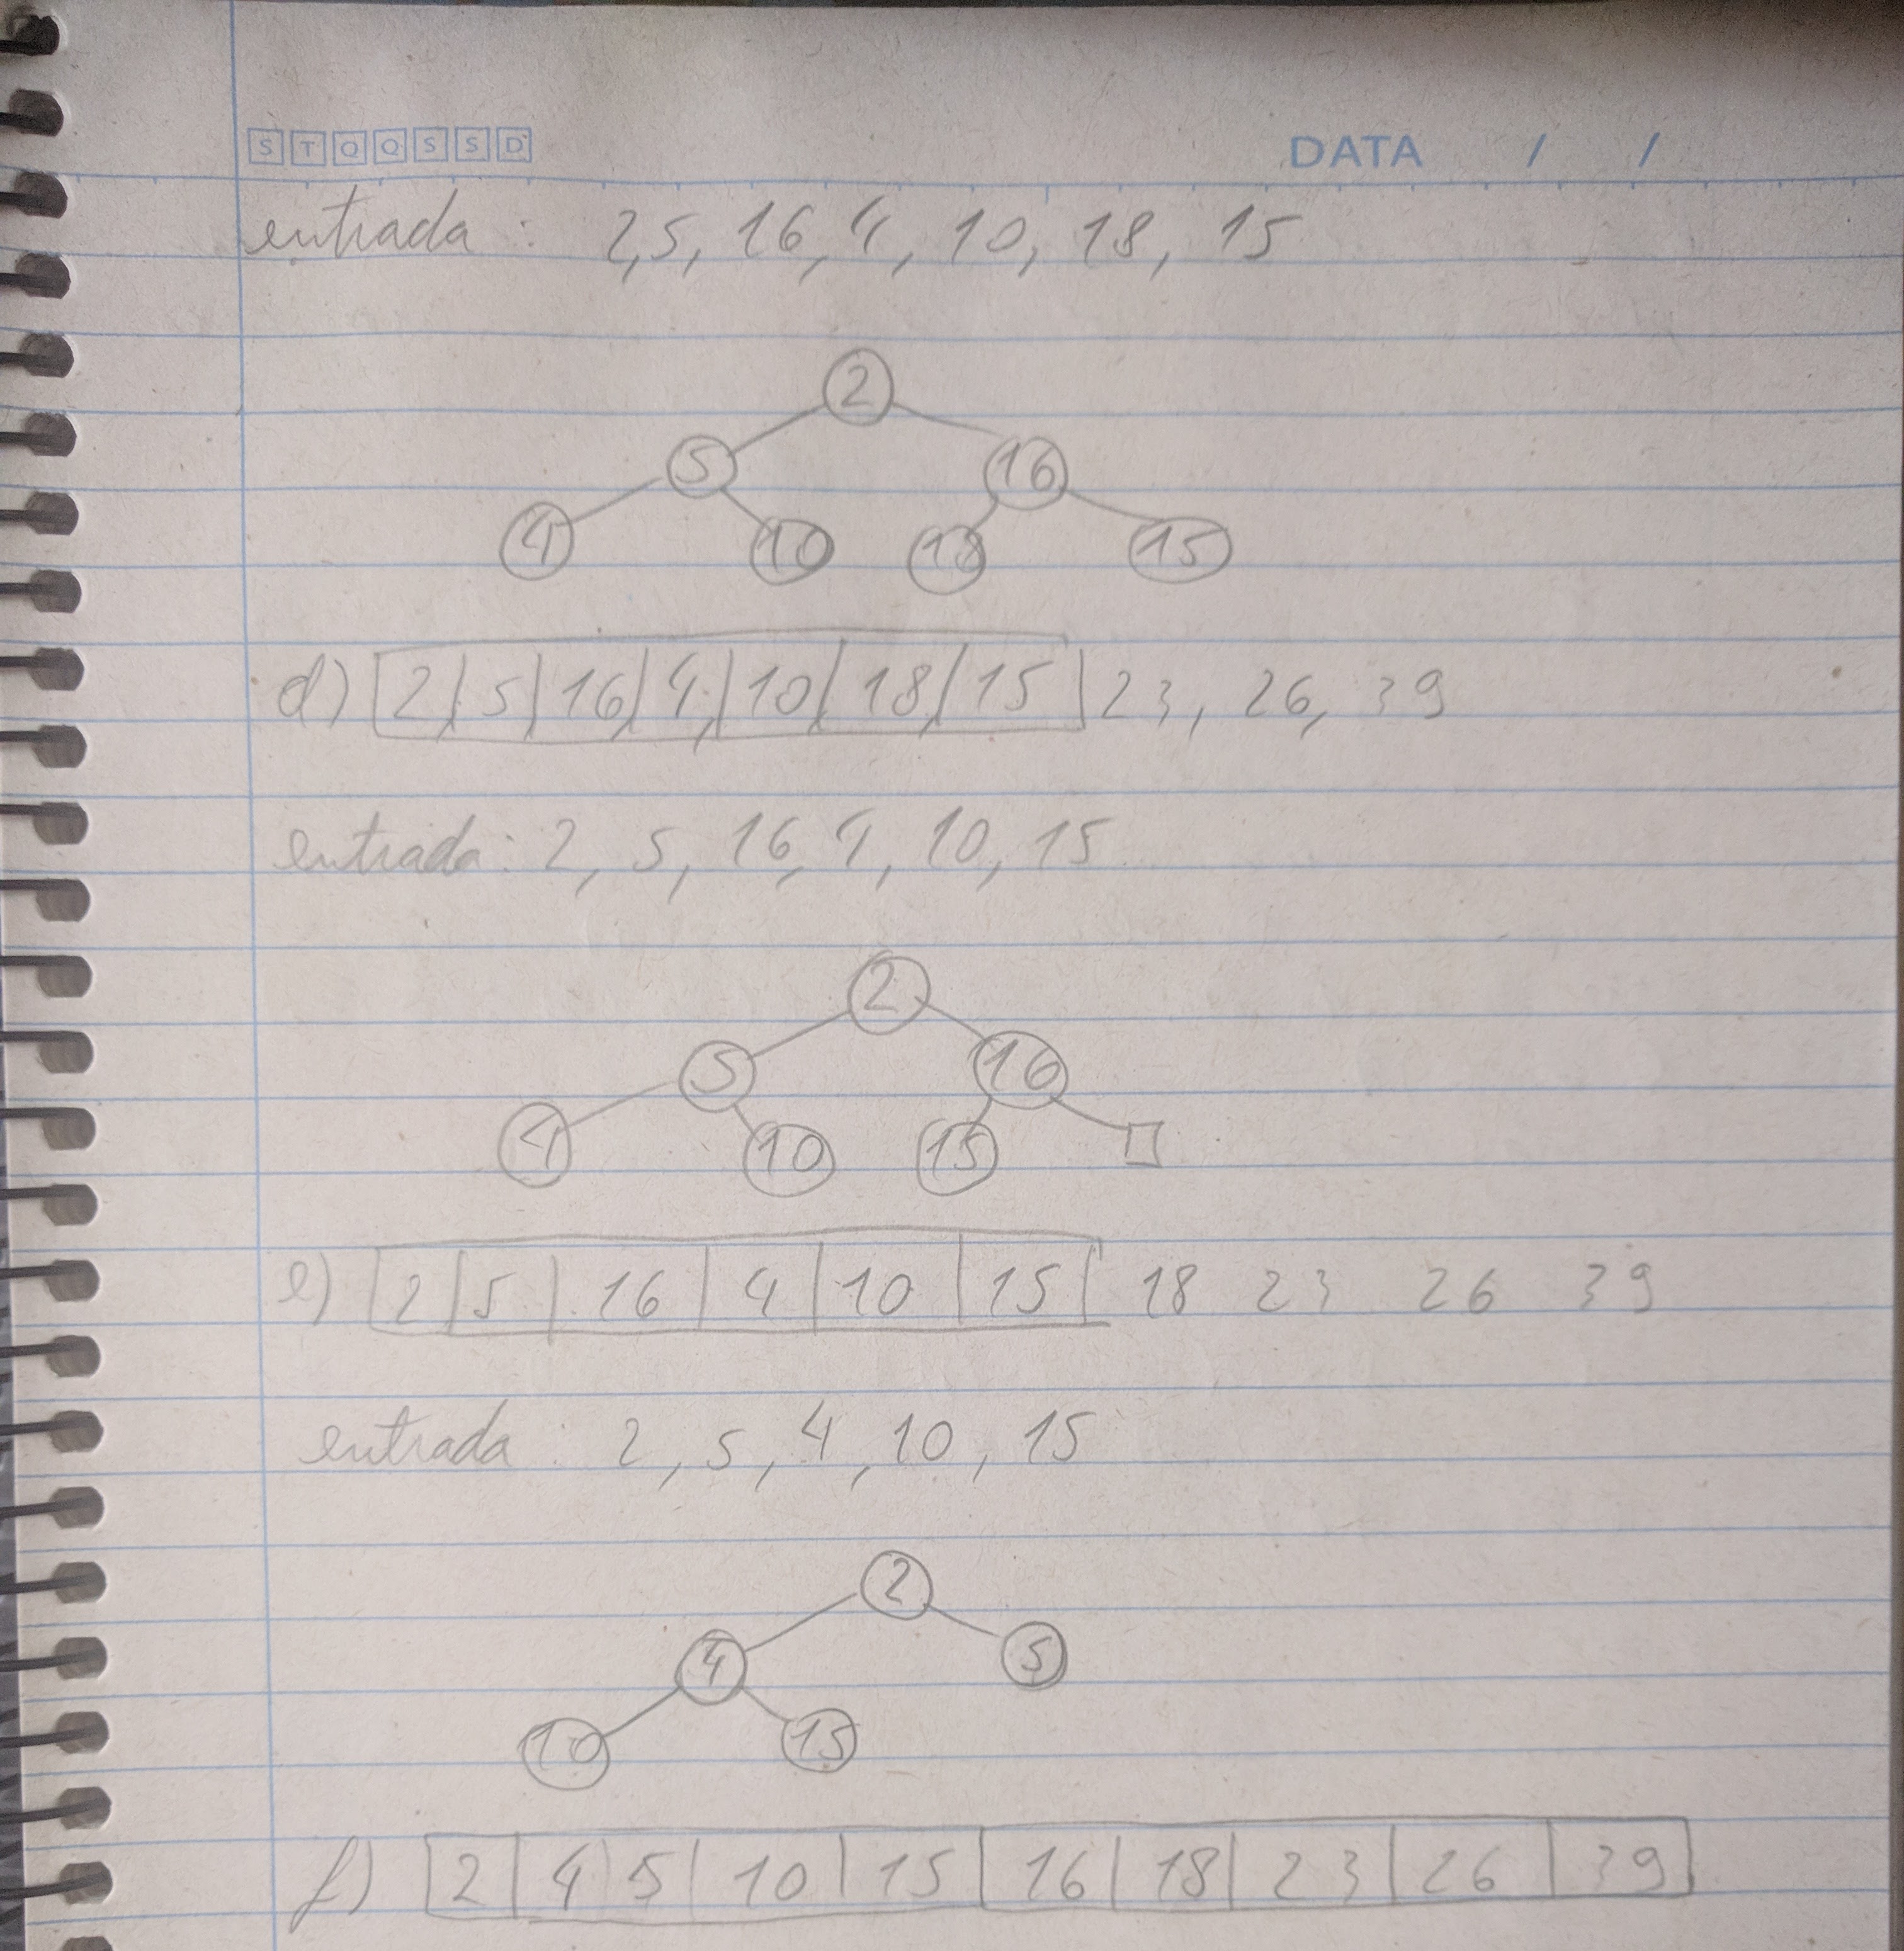 S T Q Q S S D DATA / /
entrada : 2, 5, 16, 4, 10, 18, 15
2
5 16
4 10 18 15
d) 2 5 16 4 10 18 15 23, 26, 39
entrada : 2, 5, 16, 4, 10, 15
2
5 16
4 10 15
e) 2 5 16 4 10 15 18 23 26 39
entrada : 2, 5, 4, 10, 15
2
4 5
10 15
f) 2 4 5 10 15 16 18 23 26 39